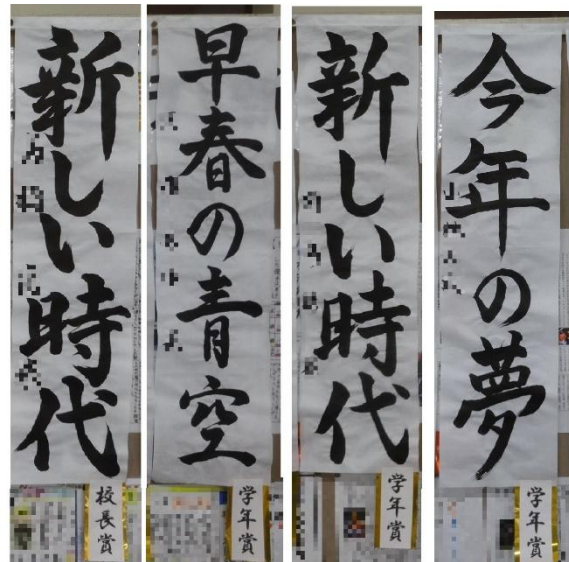 新しい時代
校長賞
早春の青空
学年賞
新しい時代
学年賞
今年の夢
学年賞